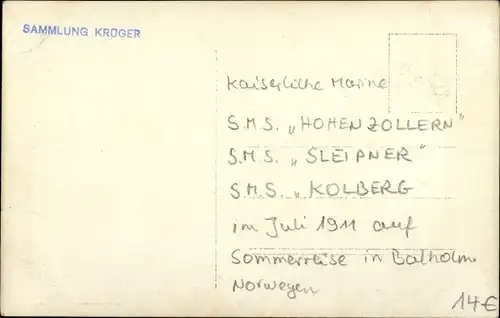 SAMMLUNG KRÜGER
Kaiserliche Marine
S.M.S. „HOHENZOLLERN"
S.M.S. „SLEIPNER"
S.M.S. „KOLBERG
im Juli 1911 auf
Sommerreise in Balholm.
Norwegen
14€